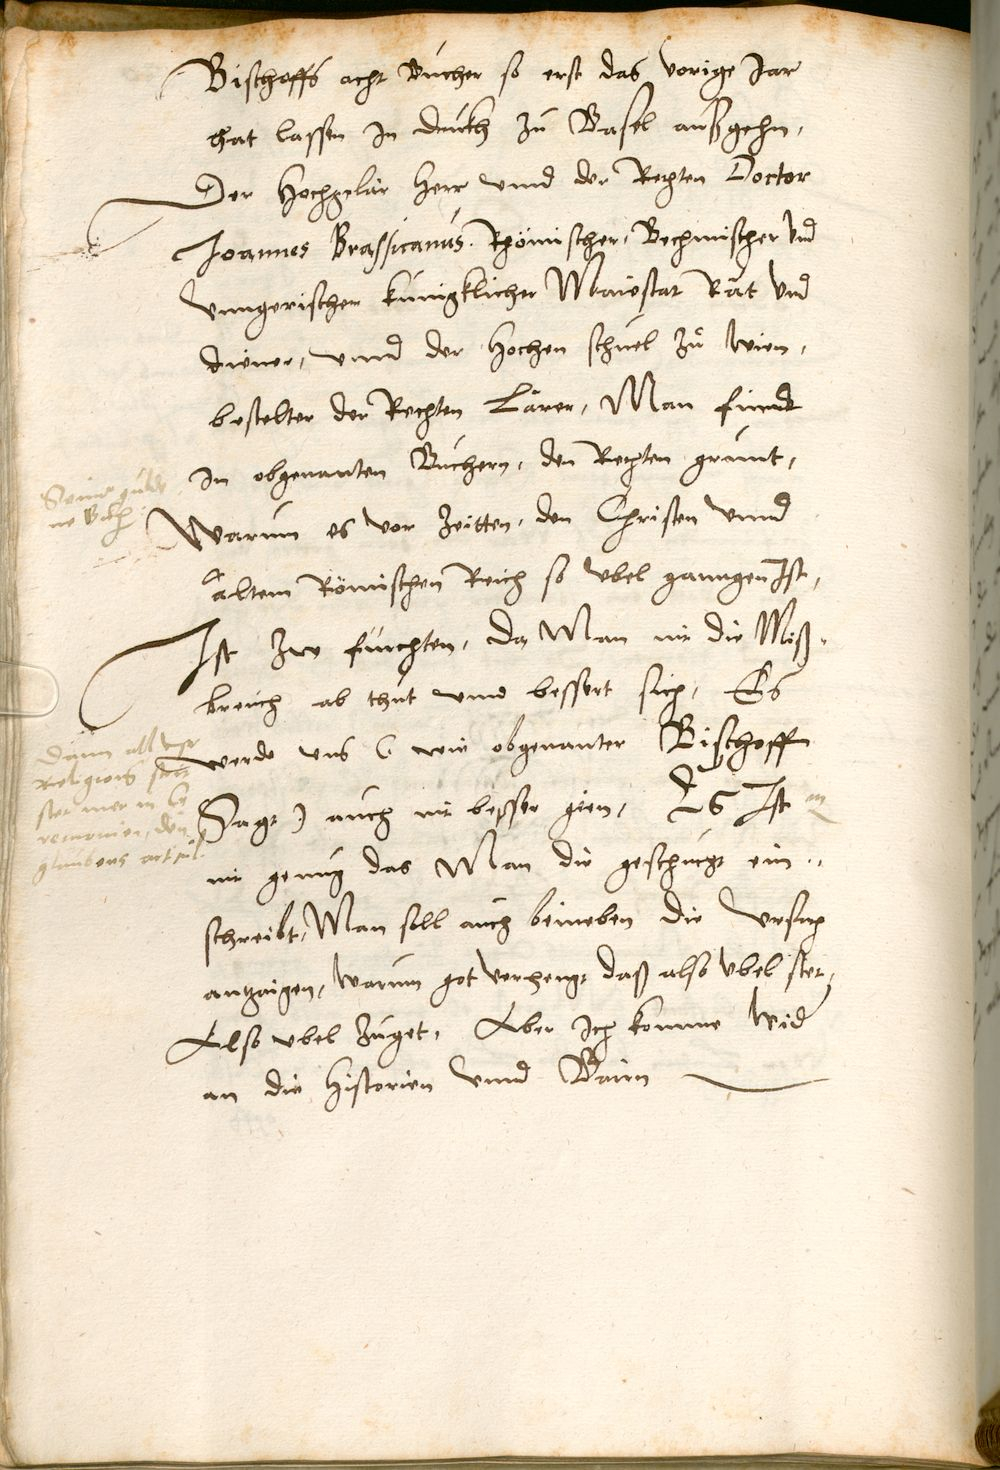 Bischoffs acht Bücher so erst das vorige Jar
hat lassen in druckh zu Basel außgehn,
Der hochgelär herr vnnd der Rechten Doctor
Joannes Brassicanus. Rhömischer, Bechmischer vnd
vnngerischer künigklicher Maiestat Rat vnd
diener, vnnd der hochen schuel zů wien,
bestelter der Rechten Lärer, Man findt
in obgenanten Büchern, den Rechten grünt,
Warum es vor Zeitten, den Christen vnnd
altem Römischen Reich so vbel ganngen Ist,
Ist Zw fürchten, da Man nit die Miß-
breüch ab thüt vnnd bessert sich, Es
werde vns (wie obgenanter Bischoff
Sagt) auch nit besser gien, Es Ist
nit genüg das Man die geschicht ein-
schreibt, Man soll auch beineben die vrsach
antzaigen, warum got verhengt daß also vbel stet,
Also vbel zuget, Aber Ich komme wid
an die historien vnnd Bairn
Seine guld
ne Bch
Dann all vnser
Religions
ster mer in Ce
remonien, den
glaubens articl.